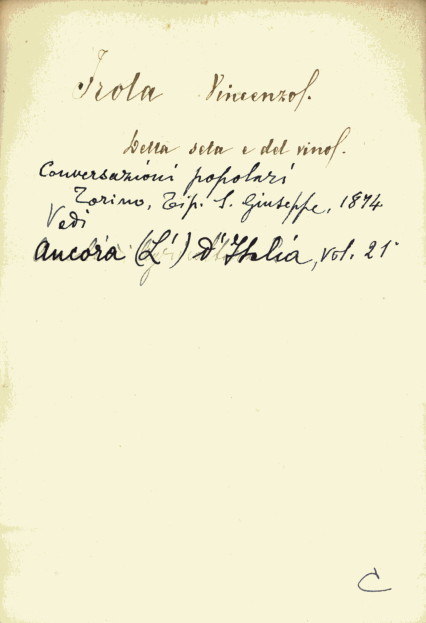 Irola Vincenzo.
Della seta e del vino.
Conversazioni popolari
Torino, Tip. S. Giuseppe, 1874
Vedi
Ancora (L') d'Italia, vol. 21°
C